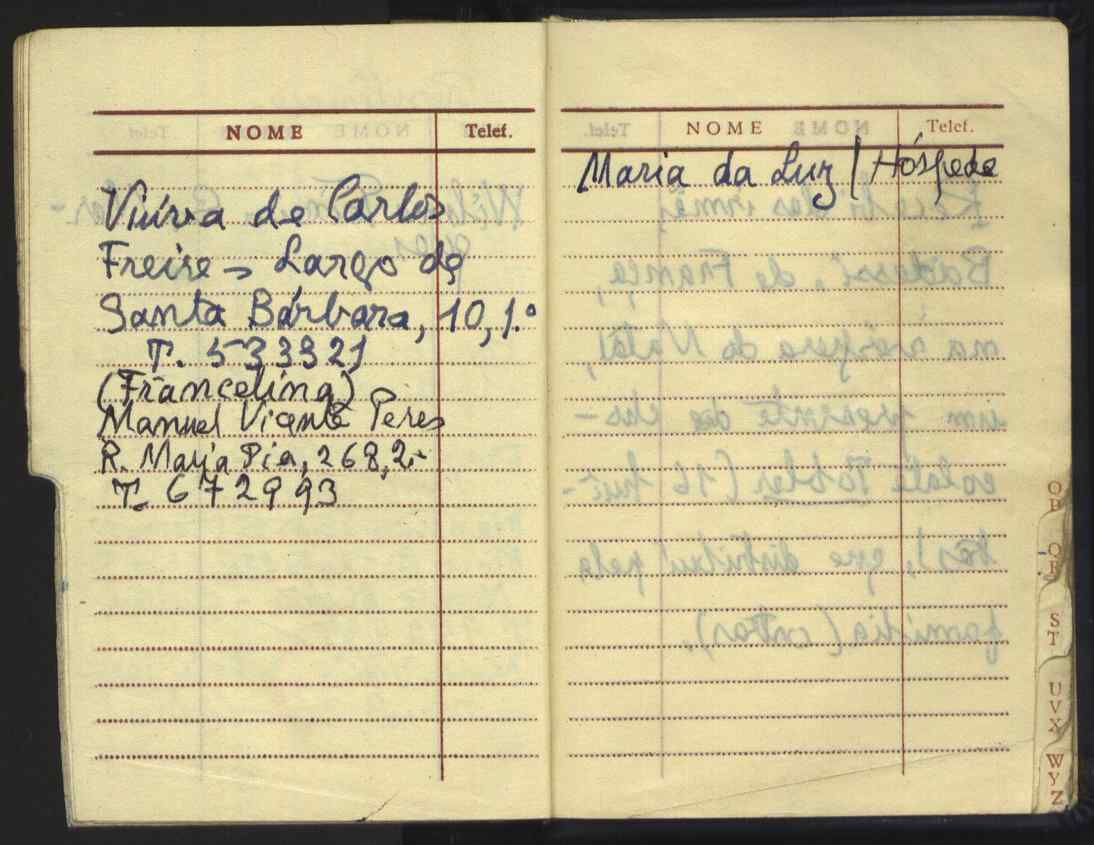 NOME Telef.
Viúva de Carlos
Freire - Largo de
Santa Bárbara, 10, 1.º
T. 533321
(Francelina)
Manuel Vicente Peres
R. Maria Pia, 268, 2.-
T. 672993
NOME Telef.
Maria da Luz | Hóspede
OP
QR
ST
UVX
WYZ